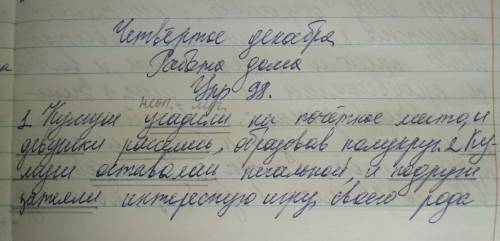 Четвёртое декабря
Работа дома
Упр 98.
1. Кумуши усадили на почётное место, и
девушки расселись, образовав полукруг. 2 Ку-
муши оставалась печальной, и подруги
затеяли интересную игру, своего рода